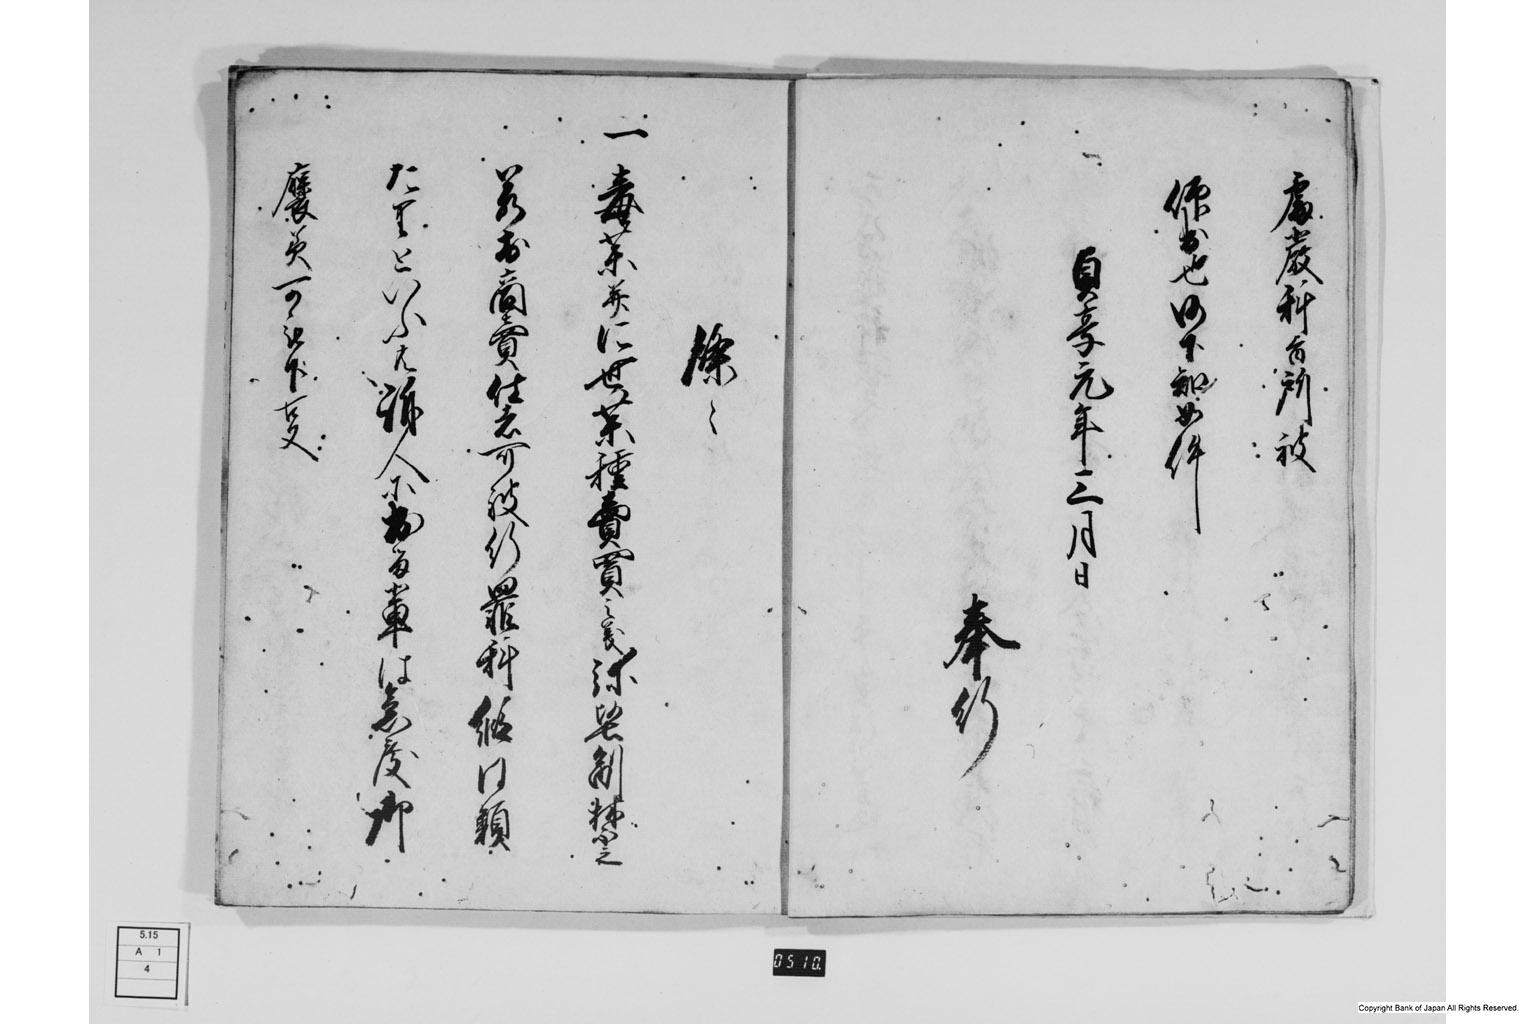 處嚴科旨所被
仰出也仍下知如件
貞享元年三月日
奉行
條々
一 毒薬并に世薬種賣買之義弥堅制禁之
若於商賣仕者可被行罪科縦同類
たりといふ共訴人於出る輩は急度御
褒美可被下下事
5.15
A 1
4
0510.
Copyright Bank of Japan All Rights Reserved.